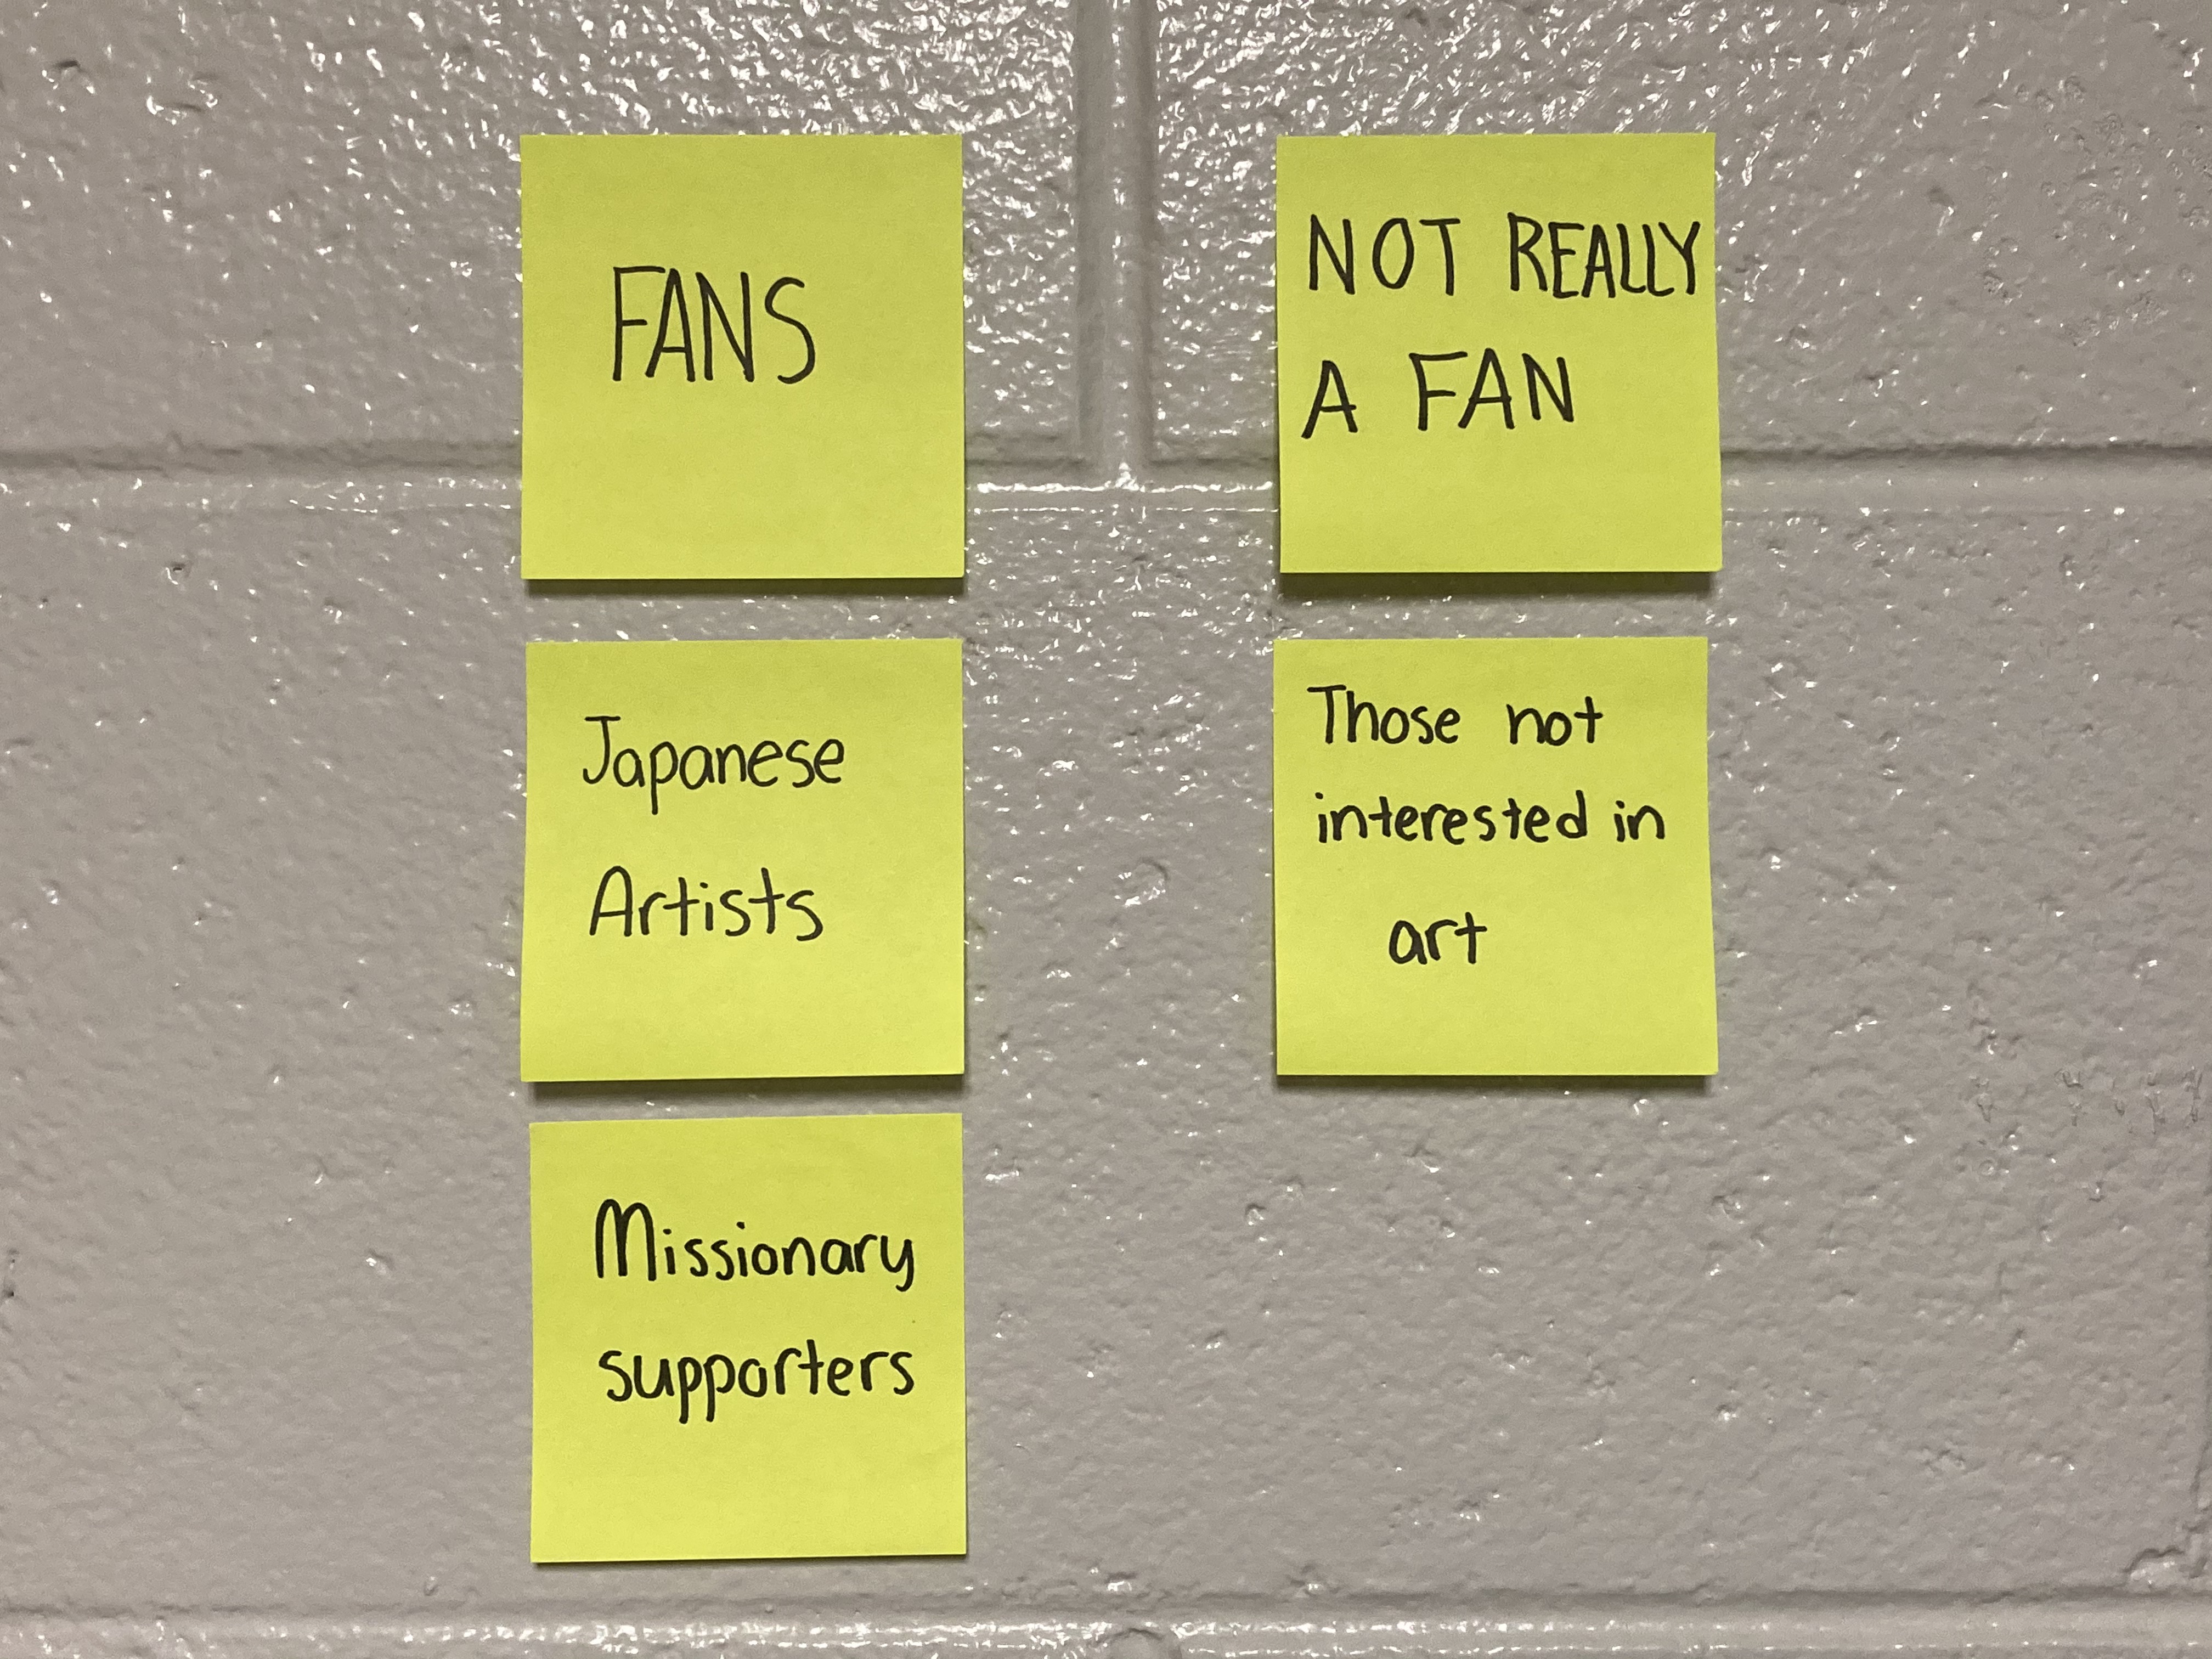 FANS
Japanese
Artists
Missionary
supporters
NOT REALLY
A FAN
Those not
interested in
art